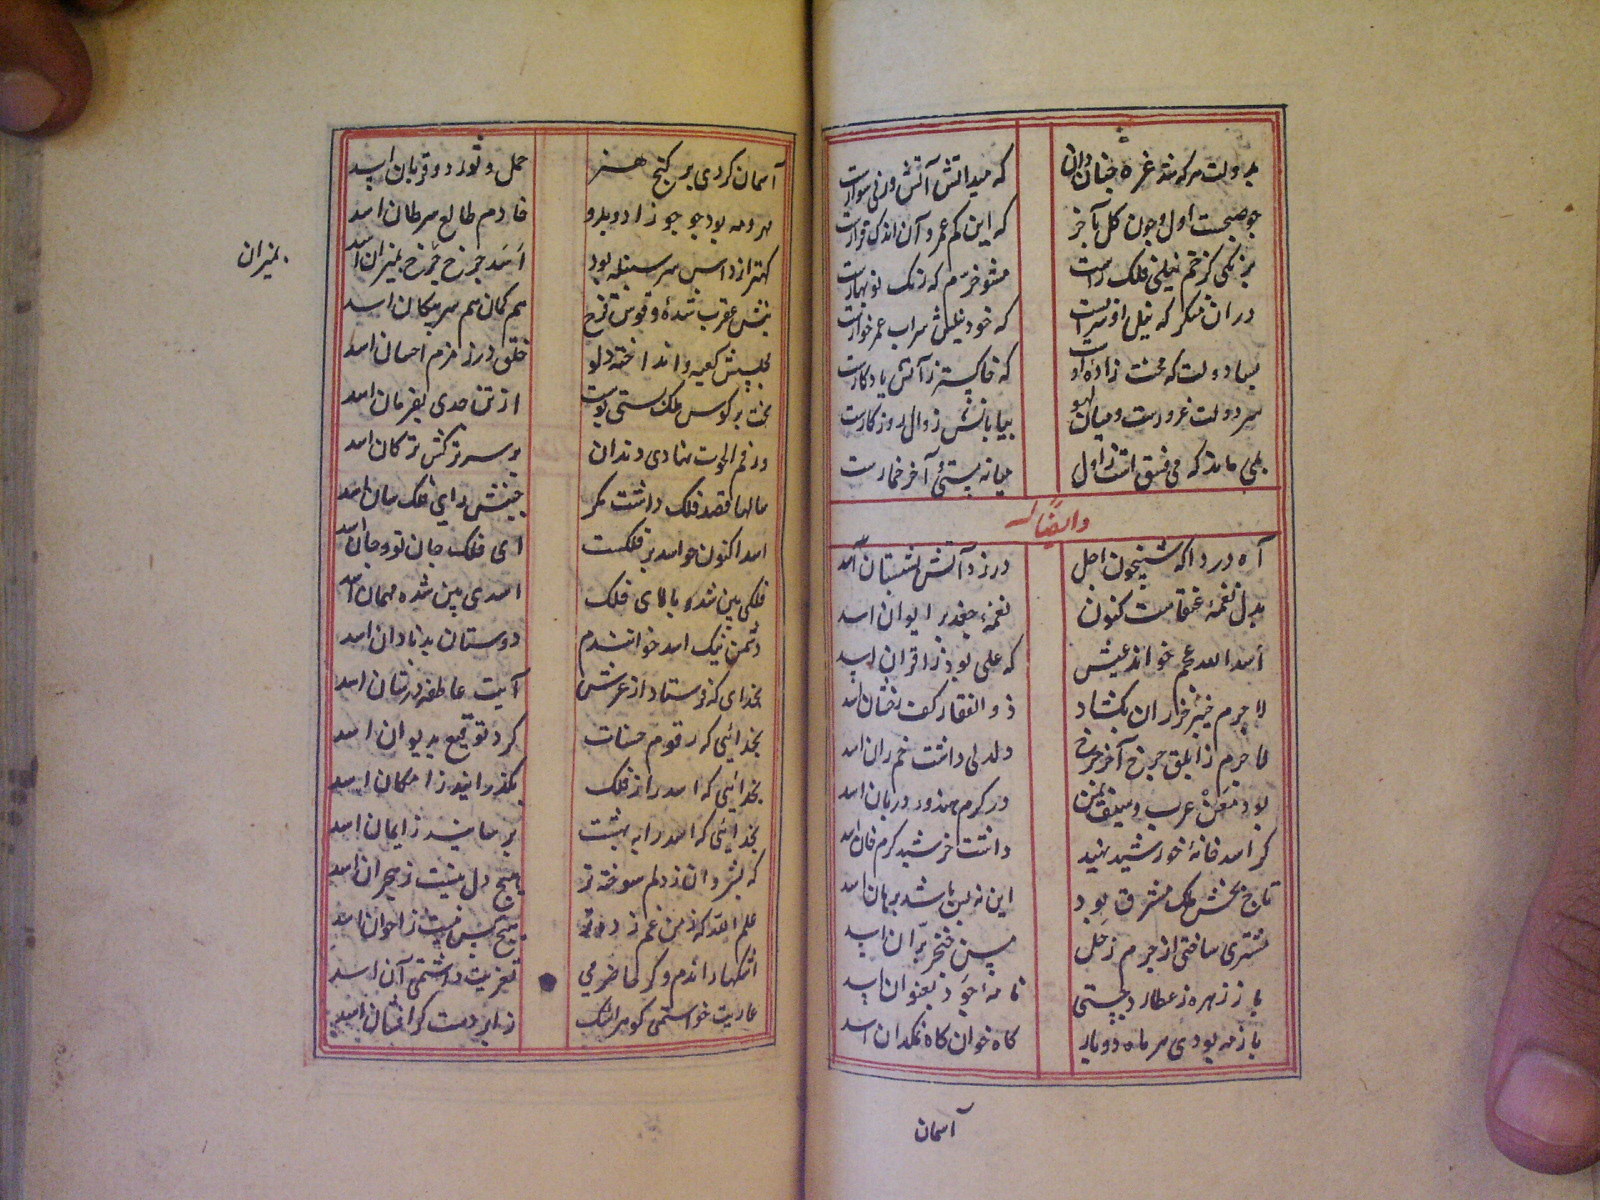 بدولت هرکه شد غره چنان دان که میدانش آتش و نی سوارست
چو صبحست اول و چون گل بآخر که این کم عمر و آن اندک قرارست
برنگی کز خم نیلی فلک راست مشو خرم که رنگ نوبهارست
در آن منگر که نیل او سرابست که خود نیلش سراب عمر خوارست
بسا دولت که محنت زاده اوست که خاکستر ز آتش یادگارست
سر دولت غرورست و میان لهو بیابانش زوال روزگارست
بلی ماند که می فسق است ز اول میانه مستی آخر خمارست
وایضاً له
آه و دردا که شبیخون اجل در زد آتش بشبستان اسد
بدل نغمه عنقاست کنون نغمه جغد بر ایوان اسد
اسد الله عجم خواند علیش که علی بود ز اقران اسد
لاجرم خیبر خزران بگشاد ذوالفقار کف رخشان اسد
لاجرم ز ابلق چرخ آخر چرخ دلدلی داشت خم ران اسد
بود معن عرب و سیف یمن در کرم هندوی دربان اسد
گر اسد خانه خورشید نهند داشت خورشید کرم خان اسد
تاج بخش ملک مشرق بود این نه بس باشد برهان اسد
مشتری ساختی از جرم زحل پس خنجر بران اسد
باز زهره ز عطارد جستی نامه جود بعنوان اسد
باز مه بودی هر ماه دو بار گاه خوان گاه نمکدان اسد
آسمان
آسمان کردی بر گنج هنر حمل و ثور دو قربان اسد
مهر و مه بود چو جوزا دو بدو خادم طالع سرطان اسد
کهتر از داس سر سنبله بود اسد چرخ بمیزان اسد
بمیزان
نیش عقرب شده و قوس قزح هم کمان هم سر پیکان اسد
بچلپش کعبه و انداخته دلو خلق در زمزم احسان اسد
از تن جدی بفرمان اسد
در فم الحوت نهادی دندان بر سر ترکش ترکان اسد
سالها قصد فلک داشت مگر جنبش رای فلک سان اسد
اسد اکنون چو اسد بر فلکست ای فلک جان تو و جان اسد
فلکی بین شده بالای فلک اسدی بین شده مهمان اسد
دشمن نیک اسد خوانندم دوستان بد نادان اسد
بخدای که فرستاد از عرش آیت عاطفه در شان اسد
بخدائی که رقوم حسنات کرد توقیع بدیوان اسد
بخدائی که اسد را ز فلک بگذرانید ز امکان اسد
بخدائی که اسد را به بهشت برسانید ز ایمان اسد
که بشروان ز دلم سوخته تر هیچ دل نیست ز هجران اسد
علم الله که ز من غم زده تر هیچ کس نیست ز اخوان اسد
اشکها راندم و گر حاضرمی تعزیت داشتمی آن اسد
عاریت خواستمی گوهر اشک ز ابر دست گرافشان اسد